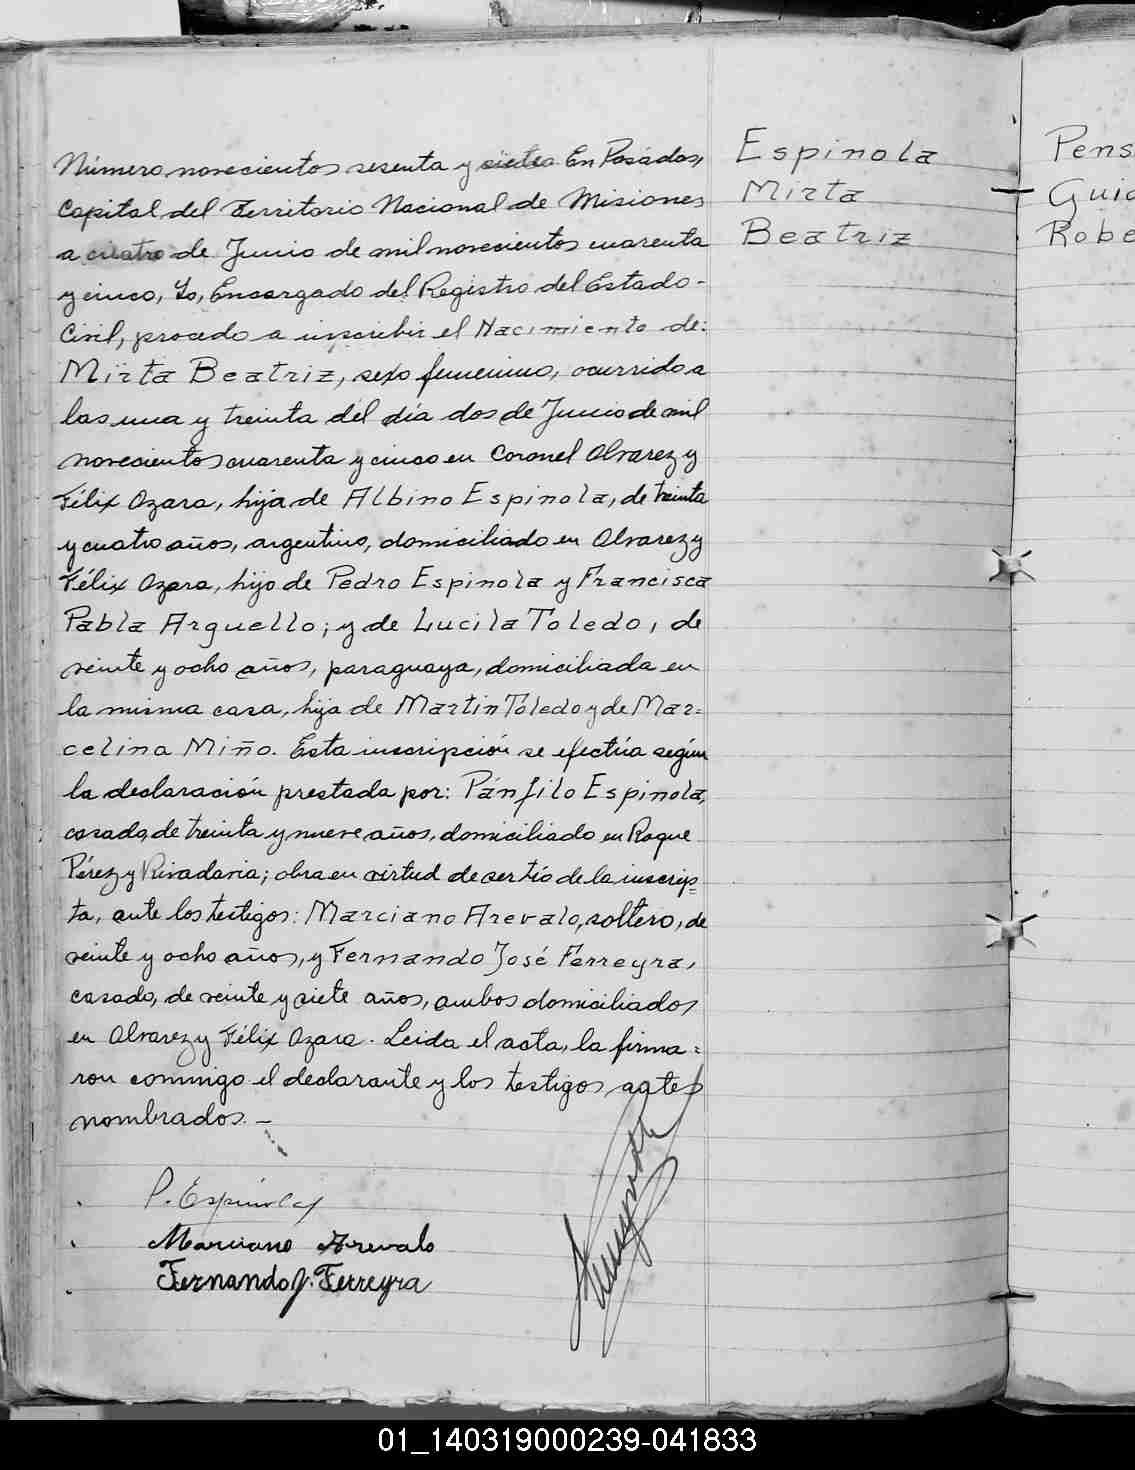 Número novecientos sesenta y siete En Posadas,
Capital del Territorio Nacional de Misiones
a cuatro de Junio de mil novecientos cuarenta
y cinco, Yo, Encargado del Registro del Estado-
Civil, procedo a inscribir el Nacimiento de:
Mirta Beatriz, sexo femenino, ocurrido a
las una y treinta del día dos de Junio de mil
novecientos cuarenta y cinco en Coronel Alvarez y
Félix Azara, hija de Albino Espinola, de treinta
y cuatro años, argentino, domiciliado en Alvarez y
Félix Azara, hijo de Pedro Espinola y Francisca
Pabla Arguello; y de Lucila Toledo, de
veinte y ocho años, paraguaya, domiciliada en
la misma casa, hija de Martin Toledo y de Mar=
celina Miño. Esta inscripción se efectúa según
la declaración prestada por: Pánfilo Espinola,
casado, de treinta y nueve años, domiciliado en Roque
Pérez y Rivadavia; obra en virtud de ser tío de la inscrip=
ta, ante los testigos: Marciano Arevalo, soltero, de
veinte y ocho años, y Fernando José Ferreyra,
casado, de veinte y siete años, ambos domiciliados
en Alvarez y Félix Azara. Leida el acta, la firma=
ron conmigo el declarante y los testigos antes
nombrados.—
P. Espínola
Marciano Arevalo
Fernando J. Ferreyra
Espinola
Mirta
Beatriz
Pens
Guid
Robe
01_140319000239-041833